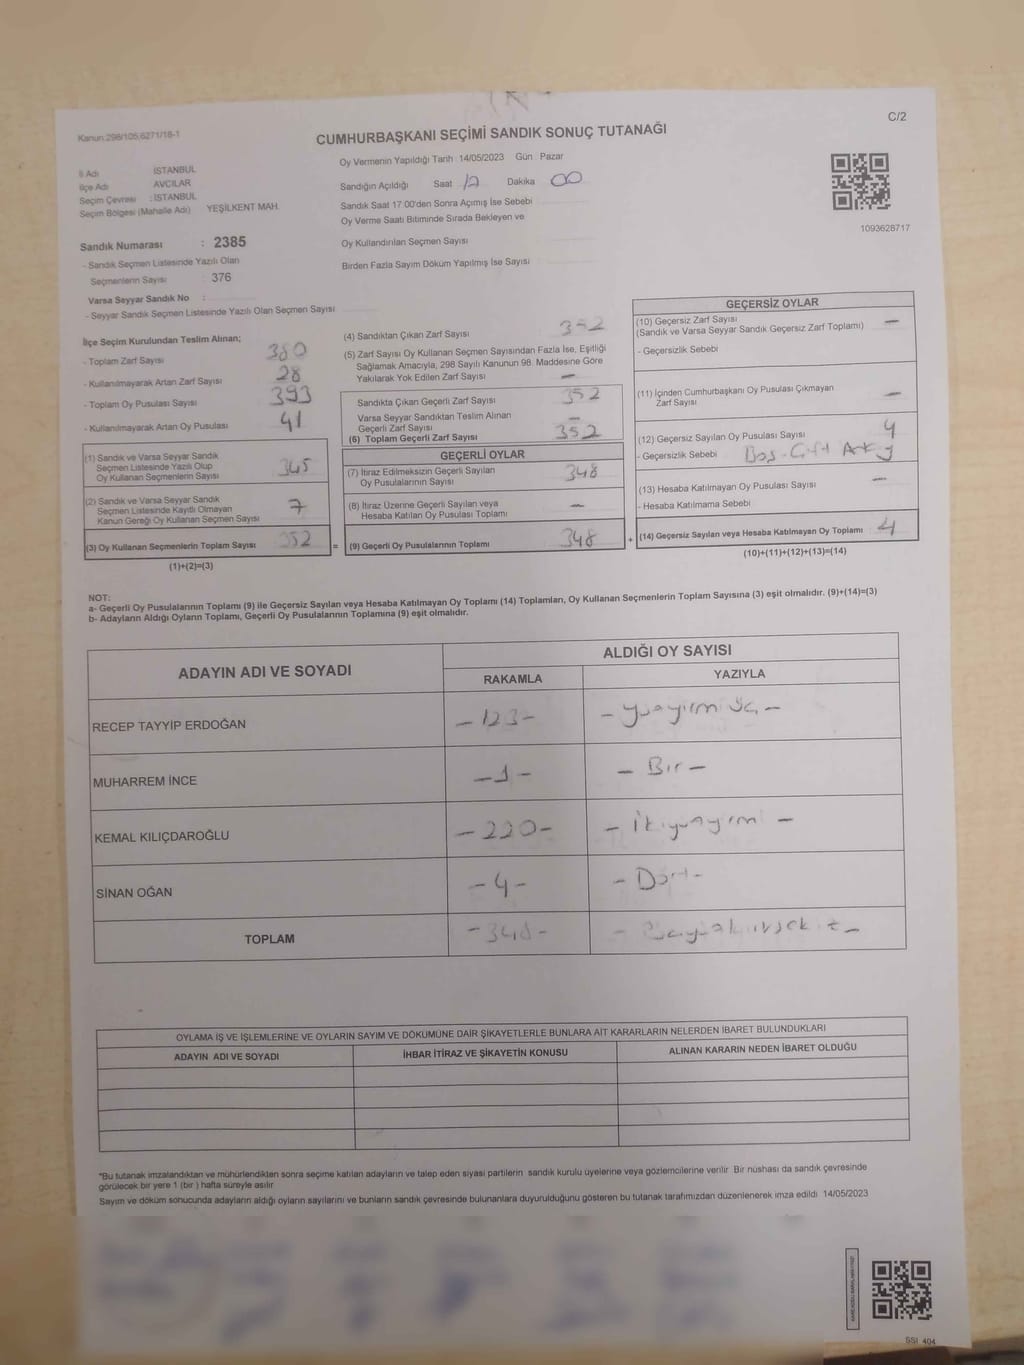 Kanun 298/105,6271/18-1
C/2
CUMHURBAŞKANI SEÇİMİ SANDIK SONUÇ TUTANAĞI
İl Adı İSTANBUL
İlçe Adı AVCILAR
Seçim Çevresi : İSTANBUL
Seçim Bölgesi (Mahalle Adı) YEŞİLKENT MAH.
Sandık Numarası : 2385
- Sandık Seçmen Listesinde Yazılı Olan
Seçmenlerin Sayısı : 376
Varsa Seyyar Sandık No :
- Seyyar Sandık Seçmen Listesinde Yazılı Olan Seçmen Sayısı
Oy Vermenin Yapıldığı Tarih 14/05/2023 Gün Pazar
Sandığın Açıldığı Saat 17 Dakika 00
Sandık Saat 17:00'den Sonra Açımış İse Sebebi
Oy Verme Saati Bitiminde Sırada Bekleyen ve
Oy Kullandırılan Seçmen Sayısı
Birden Fazla Sayım Döküm Yapılmış İse Sayısı
1093628717
İlçe Seçim Kurulundan Teslim Alınan;
- Toplam Zarf Sayısı 380
- Kullanılmayarak Artan Zarf Sayısı 28
- Toplam Oy Pusulası Sayısı 393
- Kullanılmayarak Artan Oy Pusulası 41
(1) Sandık ve Varsa Seyyar Sandık
Seçmen Listesinde Yazılı Olup
Oy Kullanan Seçmenlerin Sayısı 345
(2) Sandık ve Varsa Seyyar Sandık
Seçmen Listesinde Kayıtlı Olmayan
Kanun Gereği Oy Kullanan Seçmen Sayısı 7
(3) Oy Kullanan Seçmenlerin Toplam Sayısı 352 =
(1)+(2)=(3)
(4) Sandıktan Çıkan Zarf Sayısı 352
(5) Zarf Sayısı Oy Kullanan Seçmen Sayısından Fazla İse, Eşitliği
Sağlamak Amacıyla, 298 Sayılı Kanunun 98. Maddesine Göre
Yakılarak Yok Edilen Zarf Sayısı —
Sandıkta Çıkan Geçerli Zarf Sayısı 352
Varsa Seyyar Sandıktan Teslim Alınan
Geçerli Zarf Sayısı —
(6) Toplam Geçerli Zarf Sayısı 352
GEÇERLİ OYLAR
(7) İtiraz Edilmeksizin Geçerli Sayılan
Oy Pusulalarının Sayısı 348
(8) İtiraz Üzerine Geçerli Sayılan veya
Hesaba Katılan Oy Pusulası Toplamı —
(9) Geçerli Oy Pusulalarının Toplamı 348 +
GEÇERSİZ OYLAR
(10) Geçersiz Zarf Sayısı —
(Sandık ve Varsa Seyyar Sandık Geçersiz Zarf Toplamı)
- Geçersizlik Sebebi
(11) İçinden Cumhurbaşkanı Oy Pusulası Çıkmayan
Zarf Sayısı —
(12) Geçersiz Sayılan Oy Pusulası Sayısı 4
- Geçersizlik Sebebi Boş-
(13) Hesaba Katılmayan Oy Pusulası Sayısı —
- Hesaba Katılmama Sebebi
(14) Geçersiz Sayılan veya Hesaba Katılmayan Oy Toplamı 4
(10)+(11)+(12)+(13)=(14)
NOT:
a- Geçerli Oy Pusulalarının Toplamı (9) ile Geçersiz Sayılan veya Hesaba Katılmayan Oy Toplamı (14) Toplamları, Oy Kullanan Seçmenlerin Toplam Sayısına (3) eşit olmalıdır. (9)+(14)=(3)
b- Adayların Aldığı Oyların Toplamı, Geçerli Oy Pusulalarının Toplamına (9) eşit olmalıdır.
ADAYIN ADI VE SOYADI
ALDIĞI OY SAYISI
RAKAMLA YAZIYLA
RECEP TAYYİP ERDOĞAN -123- - yüzyirmi üç -
MUHARREM İNCE -1- - Bir -
KEMAL KILIÇDAROĞLU -220- - İkiyüzyirmi -
SİNAN OĞAN -4- - Dört -
TOPLAM -348-
OYLAMA İŞ VE İŞLEMLERİNE VE OYLARIN SAYIM VE DÖKÜMÜNE DAİR ŞİKAYETLERLE BUNLARA AİT KARARLARIN NELERDEN İBARET BULUNDUKLARI
ADAYIN ADI VE SOYADI İHBAR İTİRAZ VE ŞİKAYETİN KONUSU ALINAN KARARIN NEDEN İBARET OLDUĞU
*Bu tutanak imzalandıktan ve mühürlendikten sonra seçime katılan adayların ve talep eden siyasi partilerin sandık kurulu üyelerine veya gözlemcilerine verilir Bir nüshası da sandık çevresinde
görülecek bir yere 1 (bir) hafta süreyle asılır
Sayım ve döküm sonucunda adayların aldığı oyların sayılarını ve bunların sandık çevresinde bulunanlara duyurulduğunu gösteren bu tutanak tarafımızdan düzenlenerek imza edildi 14/05/2023
SSİ 404